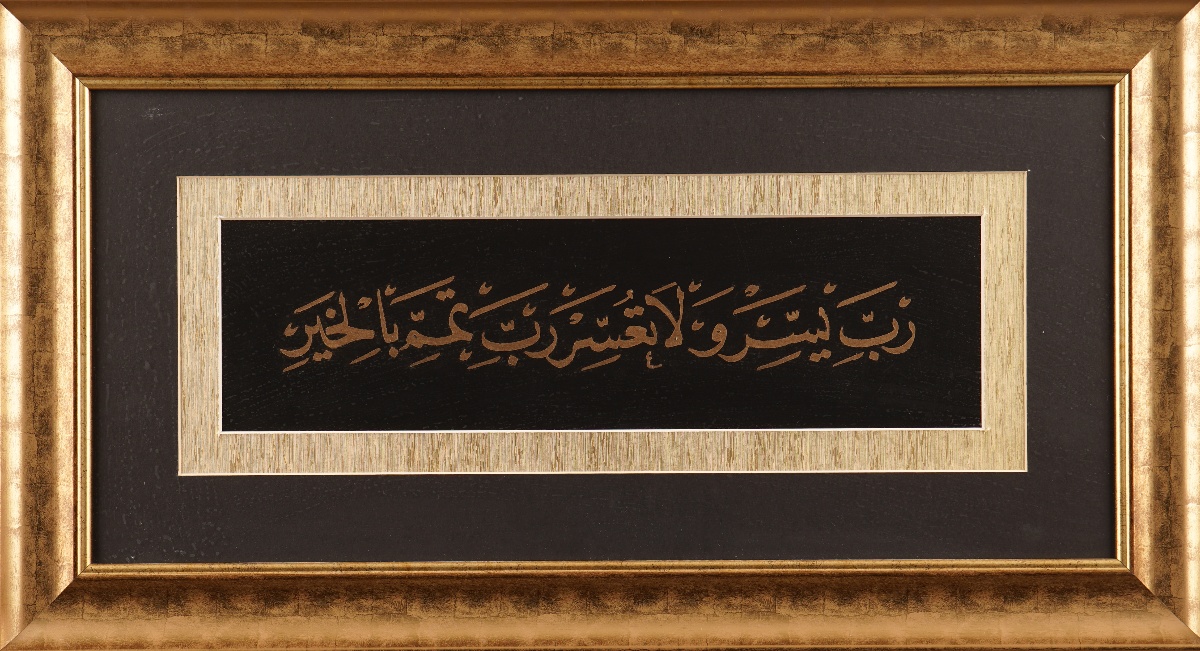 رَبِّ يَسِّرْ وَلَا تُعَسِّرْ رَبِّ تَمِّمْ بِالْخَيْرِ